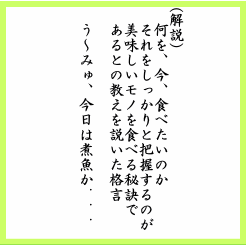 (解説)
何を、今、食べたいのか
それをしっかりと把握するのが
美味しいモノを食べる秘訣で
あるとの教えを説いた格言
う～みゅ、今日は煮魚か．．．